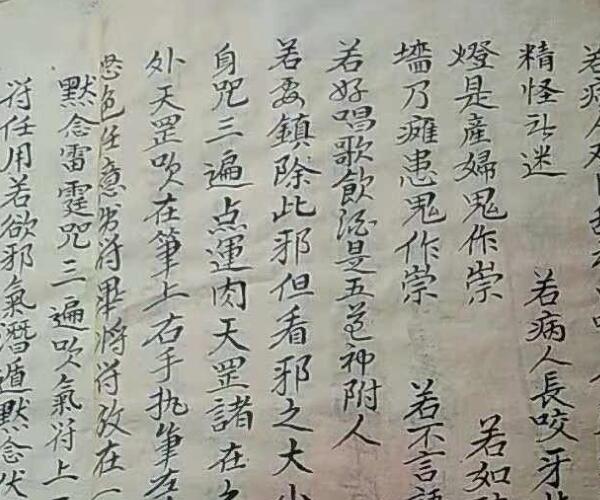 若病人
精怪所迷　若病人長咬牙
燈是產婦鬼作祟　若如
墻乃癱患鬼作祟　若不言語
若好唱歌飲酒是五道神附人
若要鎮除此邪但看邪之大小
身咒三遍点運肉天罡諸在
处天罡吹在筆上右手执筆在
色任意书符畢將符放在一
默念雷霆咒三遍吹氣符上
符任用若欲邪氣潛遁默念伏